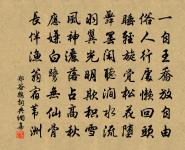 一自王喬放自由
俗人行處懶回頭
睡輕旋覺松花墮
舞罷閑聽澗水流
羽翼光明欺積雪
風神灑落占高秋
應嫌白鷺無仙骨
長伴漁翁宿葦洲
鄭谷鶴詩詞典網集